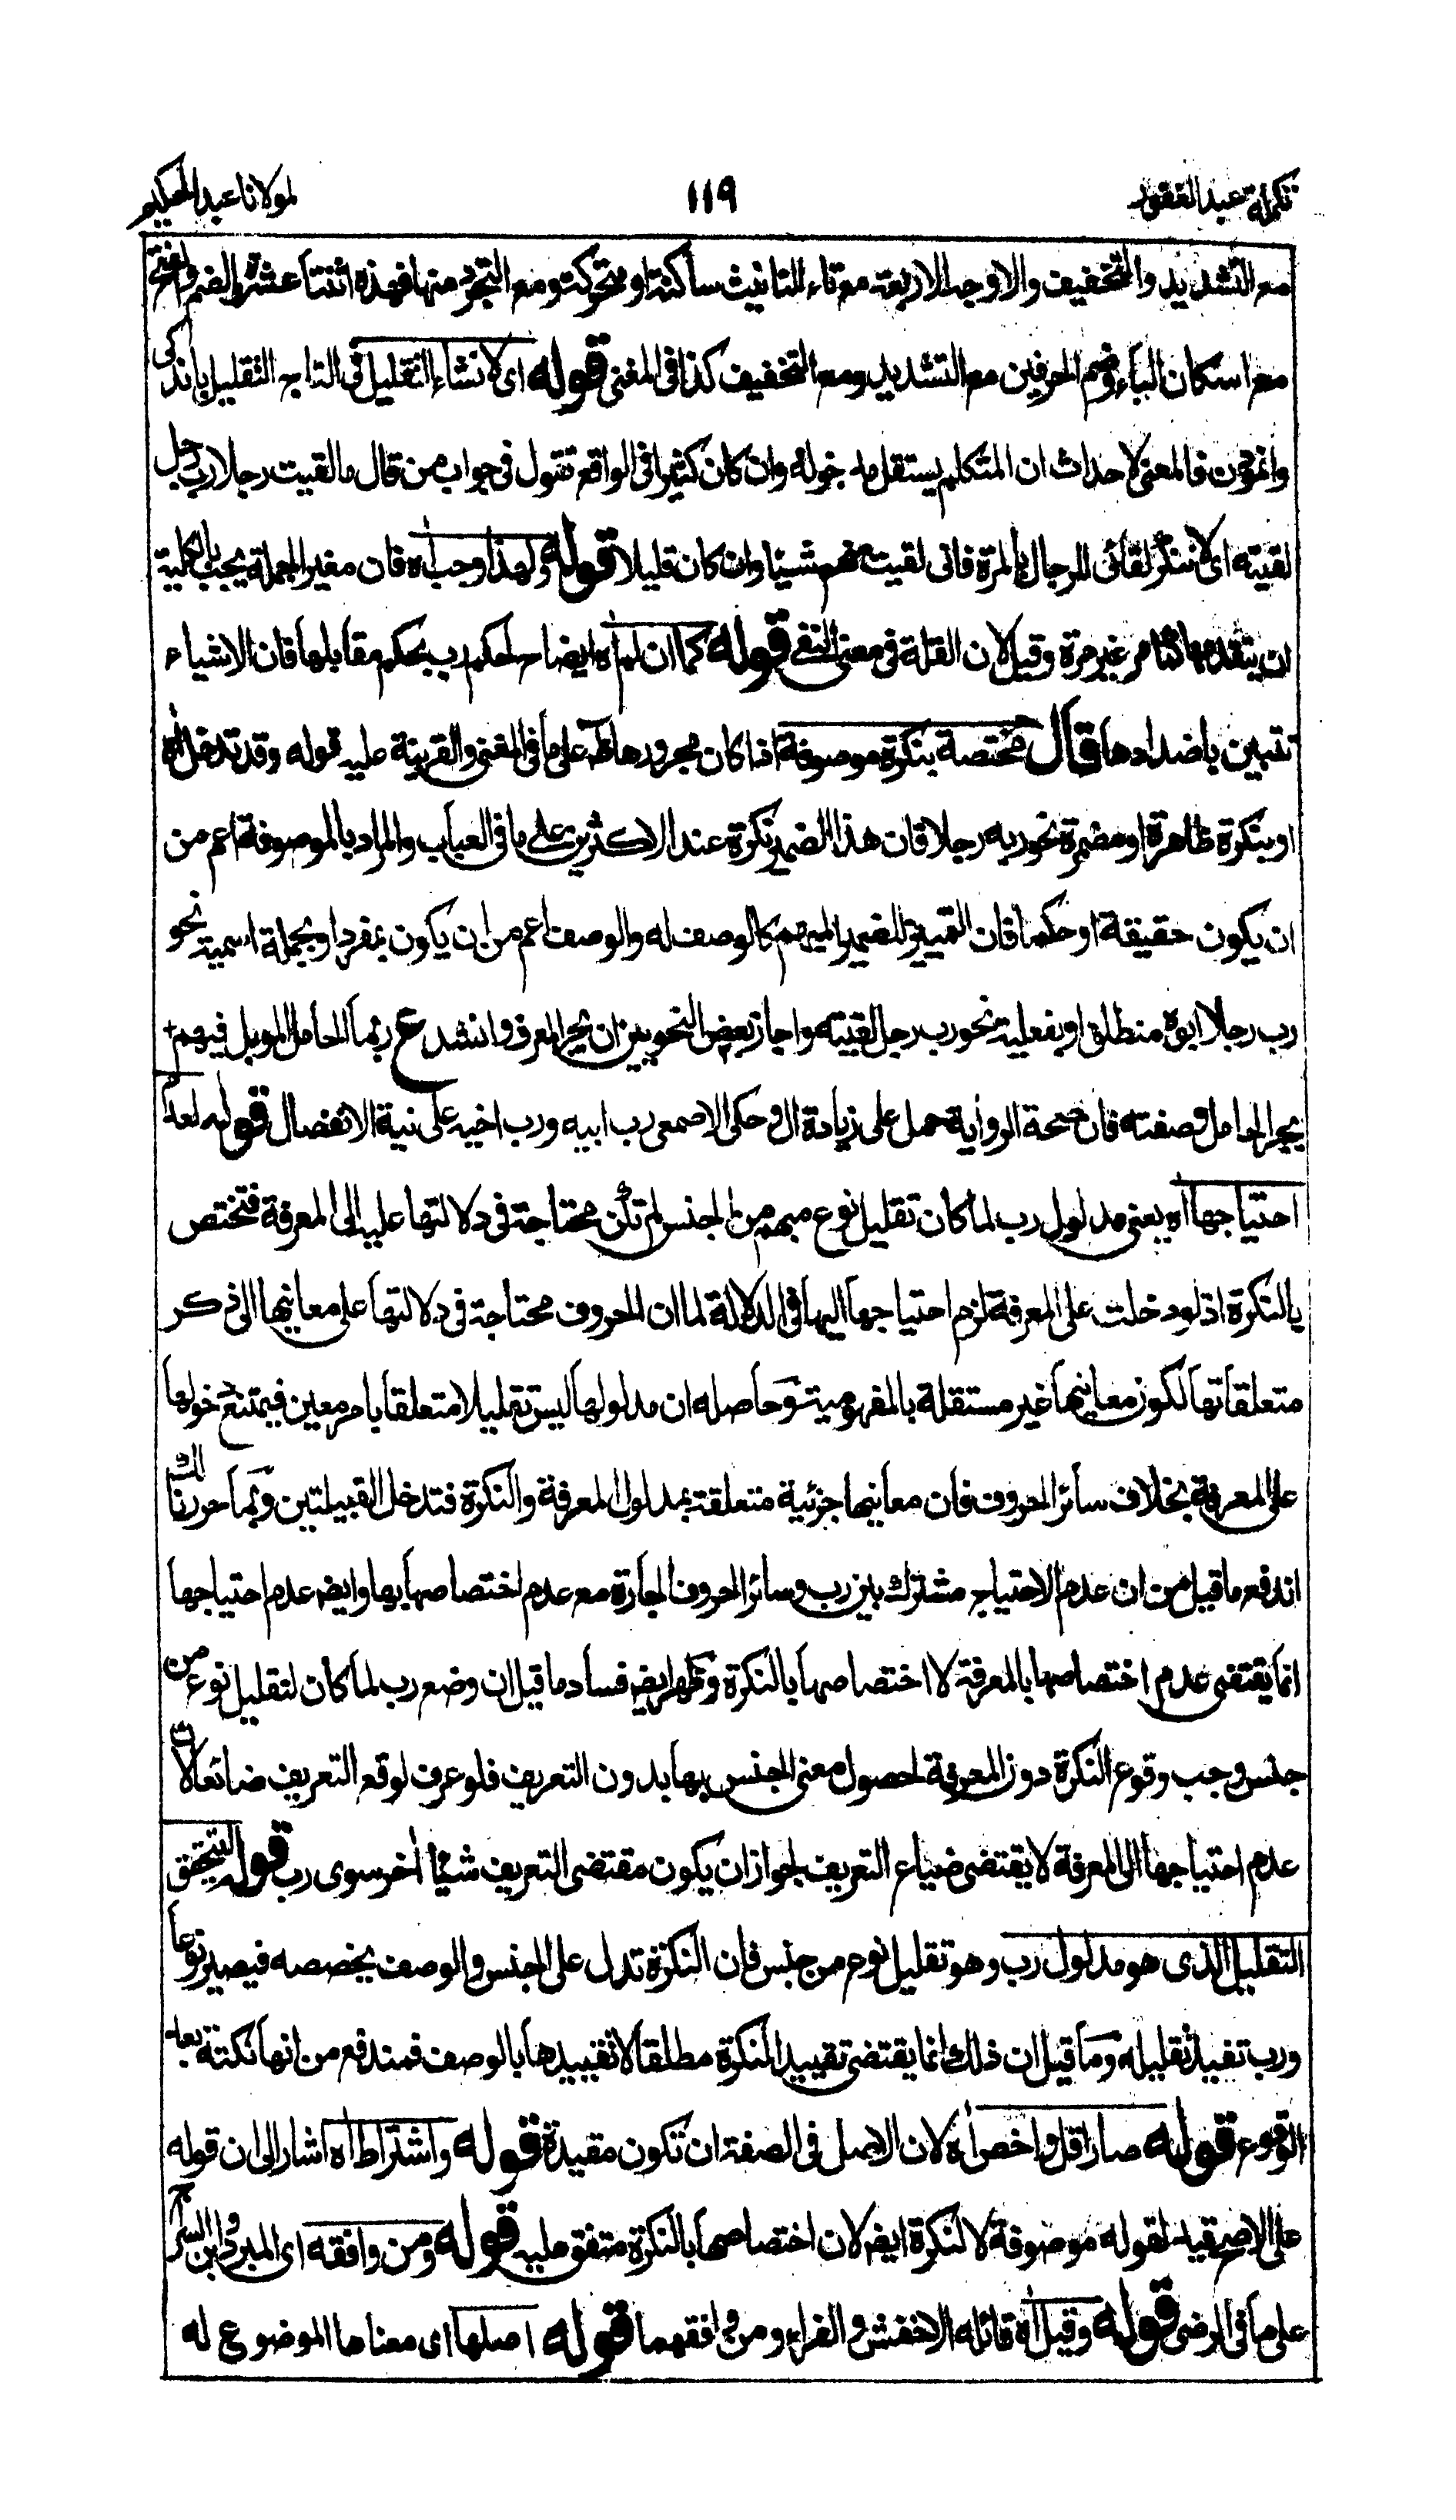 تكملة عبد الغفور ١١٩ لمولانا عبد الحكيم
مع التشديد والتخفيف والاوجه الاربعة مع تاء التانيث ساكنة او متحركة ومع التجرد منها فهذه اثنتا عشرة والضم والفتح
مع اسكان الباء وضم الحرفين مع التشديد ومع التخفيف كذا فى المغنى قوله اى لانشاء التقليل فى التاج التقليل باندكى
وانمودن فالمعنى لاحداث ان المتكلم يستقل مدخوله وان كان كثيرا فى الواقع تقول فى جواب من قال ما لقيت رجلا رب رجل
لقيته اى لا تنكر لقائى للرجال بالمرة فانى لقيت منهم شيئا وان كان قليلا قوله ولهذا وجب اه فان مغير الجملة يجب بالكلية
ان يتقدمها كما مر غير مرة وقيل لان القلة فى معنى النفى قوله كما ان لها اه ايضاح لحكم رب بحكم مقابلها فان الاشياء
تتبين باضدادها قال مختصة بنكرة موصوفة اذا كان مجرورها ظ على ما فى المغنى والقرينة عليه قوله وقد تدخل اه
او بنكرة ظاهرة او مضمرة نحو ربه رجلا فان هذا الضمير نكرة عند الاكثرين على ما فى العباب والمراد بالموصوفة اعم من
ان يكون حقيقة او حكما فان التمييز للضمير المبهم كالوصف له والوصف اعم من ان يكون بمفرد او بجملة اسمية نحو
رب رجلا ابوه منطلق او بفعلية نحو رب رجل لقيته واجاز بعض النحويين ان يجر المعرف وانشد ع ربما الجامل الموبل فيهم +
بجر الجامل وصفته فان صحة الرواية حمل على زيادة ال وحكى الاصمعى رب ابيه ورب اخيه على نية الانفصال قوله لعدم
احتياجها اه يعنى مدلول رب لما كان تقليل نوع مبهم من الجنس لم تكن محتاجة فى دلالتها عليه الى المعرفة فتختص
بالنكرة اذ لو دخلت على المعرفة لزم احتياجها اليها فى الدلالة لما ان الحروف محتاجة فى دلالتها على معانيها الى ذكر
متعلقاتها لكون معانيها غير مستقلة بالمفهومية وحاصله ان مدلولها ليس تقليلا متعلقا بامر معين فيمتنع دخولها
على المعرفة بخلاف سائر الحروف فان معانيها جزئية متعلقة بمدلول المعرفة والنكرة فتدخل القبيلتين وبما حررنا لك
اندفع ما قيل من ان عدم الاحتياج مشترك بين رب وسائر الحروف الجارة مع عدم اختصاصها بها وايضه عدم احتياجها
انما يقتضى عدم اختصاصها بالمعرفة لا اختصاصها بالنكرة وظهر ايضه فساد ما قيل ان وضع رب لما كان لتقليل نوع من
جنس وجب وقوع النكرة دون المعرفة لحصول معنى الجنس بها بدون التعريف فلو عرف لوقع التعريف ضائعا لان
عدم احتياجها الى المعرفة لا يقتضى ضياع التعريف لجواز ان يكون مقتضى التعريف شيئا أخر سوى رب قوله ليتحقق
التقليل الذى هو مدلول رب وهو تقليل نوع من جنس فان النكرة تدل على الجنس والوصف يخصصه فيصير نوعا
ورب تفيد تقليله وما قيل ان ذلك انما يقتضى تقييد النكرة مطلقا لا تقييدها بالوصف فمندفع من انها نكتة بعد
الوقوع قوله صار اقل واخص اه لان الاصل فى الصفة ان تكون مقيدة قوله واشتراط اه اشار الى ان قوله
على الاصح قيد لقوله موصوفة لا لنكرة ايضه لان اختصاصها بالنكرة متفق عليه قوله ومن وافقه اى المبرد وابن السراج
على ما فى الرضى قوله وقيل اه قائله الاخفش والفراء ومن وافقهما قوله اصلها اى معناها الموضوع له